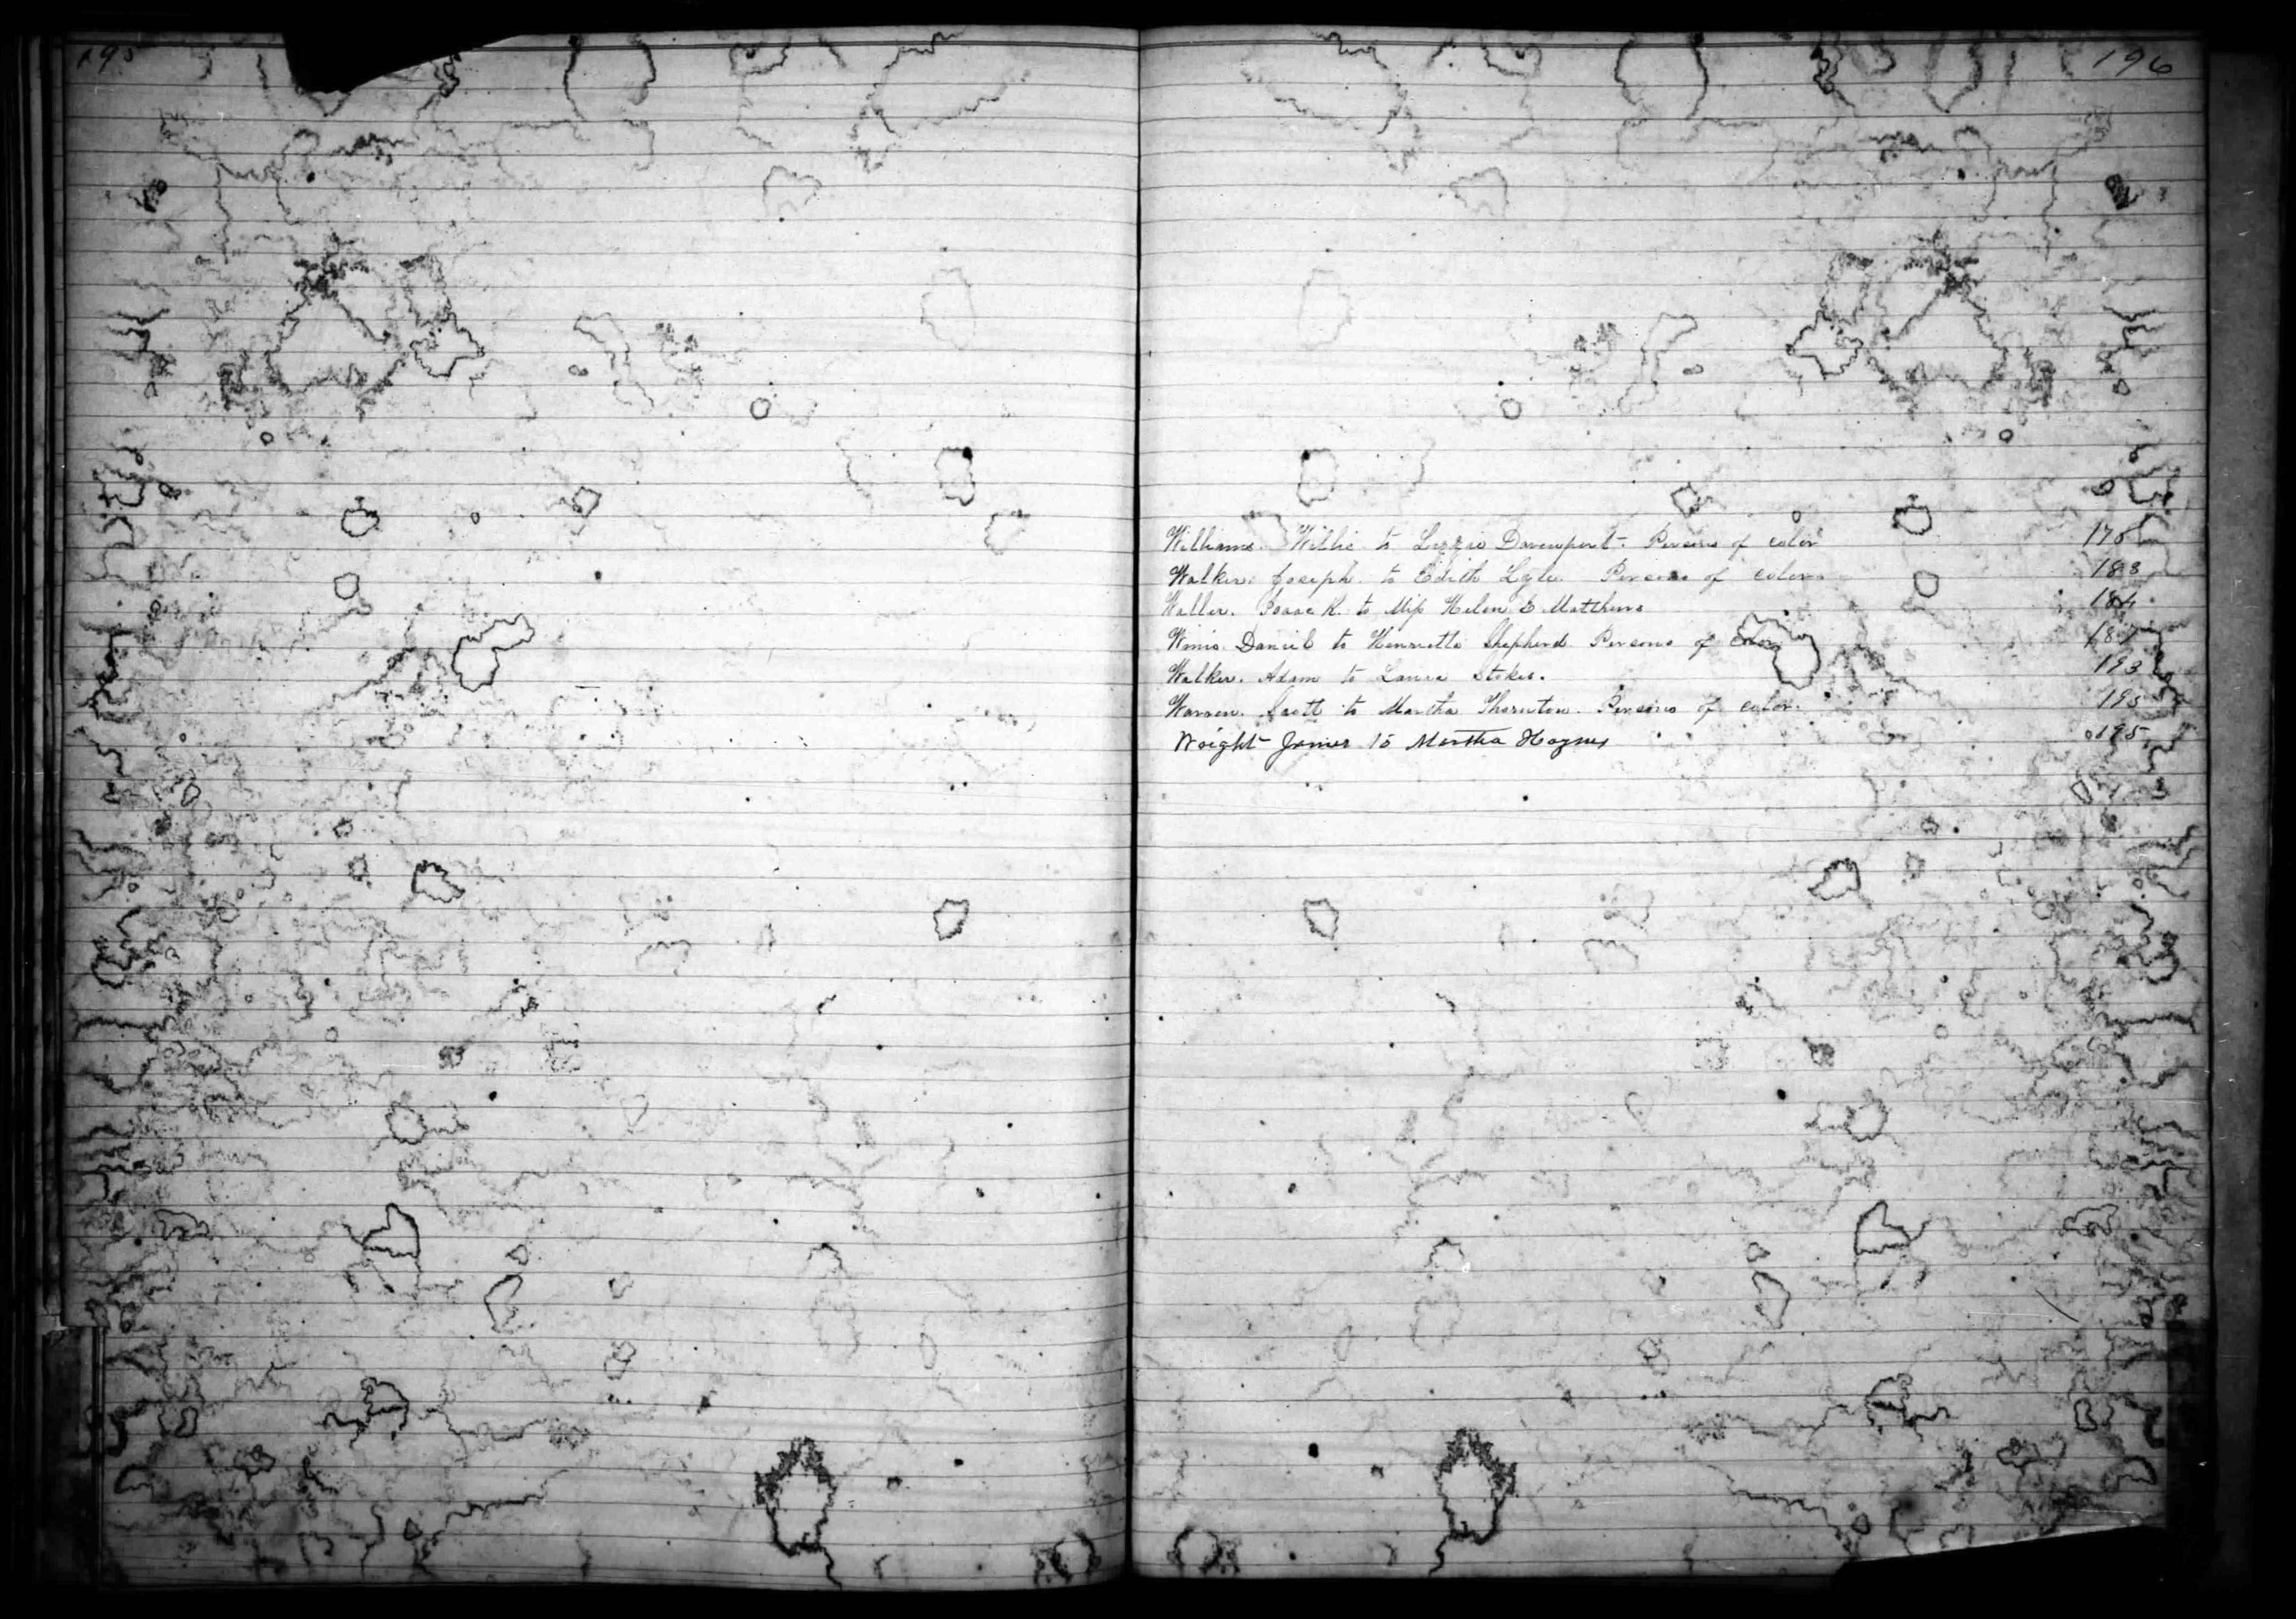 195
196
Williams. Willie to Lizzie Davenport. Persons of color 178
Walker. Joseph. to Edith Lyle. Persons of color. 183
Waller. Isaac K. to Miss Helen E Matthews 184
Daniel to Henrietta Shepherd. Persons of color 187
Walker. Adam to Laura Stokes. 193
Warren. Scott to Martha Thornton. Persons of color. 195
Wright James to Martha Haynes 195